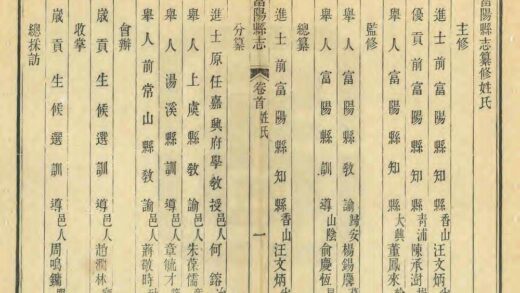 富陽縣志纂修姓氏
主修
進士前富陽縣知縣香山汪文炳
優貢前富陽縣知縣青浦陳承澍
舉人前富陽縣知縣大興董鳳來
監修
舉人富陽縣教諭歸安楊錫
舉人富陽縣訓導山陰俞慶恆
總纂
進士前富陽縣知縣香山汪文炳
富陽縣志
卷首
姓氏
一
分纂
進士原任嘉興府學教授邑人何鎔
舉人上虞縣教諭邑人朱葆儒
舉人湯溪縣訓導邑人章毓才
舉人前常山縣教諭邑人蔣敬時
會辦
歲貢生候選訓導邑人趙林
收掌
歲貢生候選訓導邑人周鳴
總採訪